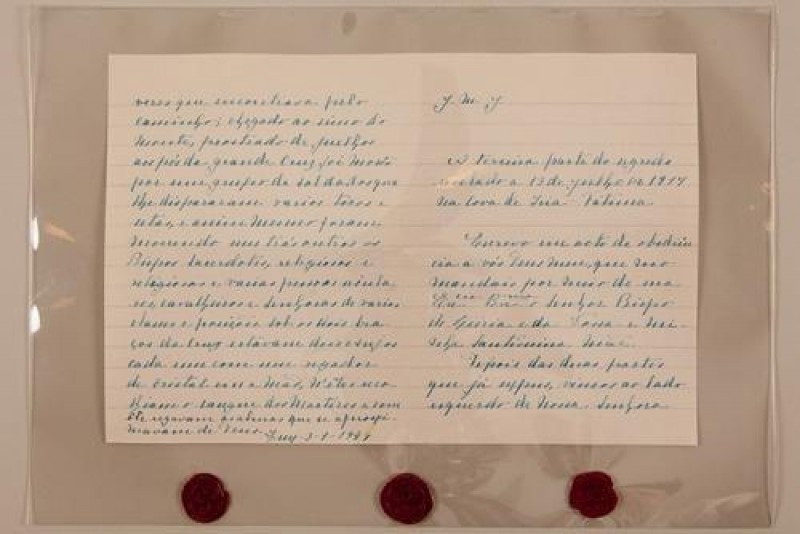 veres que encontrava pelo
caminho; chegado ao cimo do
monte, prostrado de juelhos
aos pés da grande Cruz foi morto
por um grupo de soldados que
lhe dispararam varios tiros e
setas, e assim mesmo foram
morrendo uns trás outros os
Bispos Sacerdotes, religiosos e
religiosas e varias pessoas secula-
res, cavalheiros e senhoras de varias
classes e posições. Sob os dois bra-
ços da Cruz estavam dois Anjos
cada um com um regador
de cristal em a mão, N'êles reco-
lhiam o sangue dos Martires e com
êle regavam as almas que se aproxi-
mavam de Deus. Tuy-3-1-1944
J. M. J.
A terceira parte do segredo
revelado a 13 de Julho de 1917
na Cova de Iria-Fátima.
Escrevo em acto de obediên-
cia a vós Deus meu, que mo
mandais por meio de sua
Ex.cia Rev.ma o Senhor Bispo
de Leiria e da Vossa e mi-
nha Santíssima Mãe.
Depois das duas partes
que já expus, vimos ao lado
esquerdo de Nossa Senhora